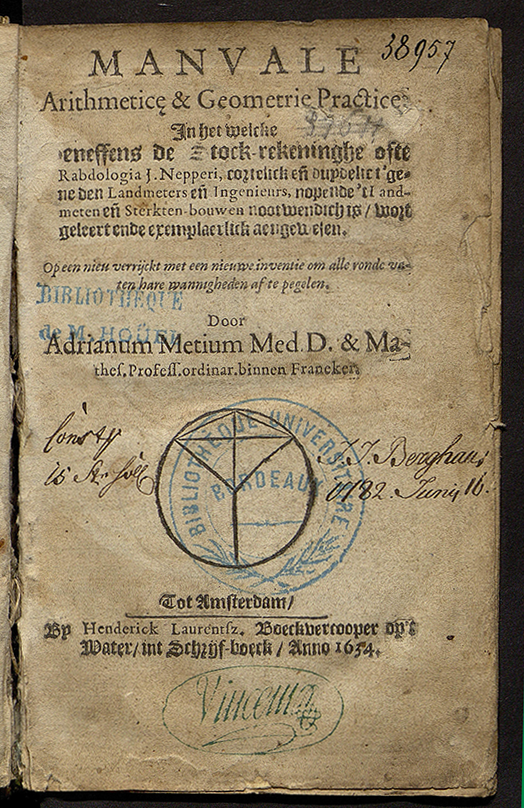 38957
MANVALE
Arithmeticę & Geometrie Practice
In het welcke
eneffens de Stock-rekeninghe ofte
Rabdologia J. Nepperi, cortelick eñ duydelic t'ge-
ne den Landmeters eñ Ingenieurs, nopende 't Land-
meten eñ Sterkten-bouwen nootwendich is / wort
geleert ende exemplaerlick aengewesen.
Op een nieu verrijckt met een nieuwe inventie om alle ronde va-
ten hare wannigheden af te pegelen.
BIBLIOTHEQUE
de M. HOÜEL
Door
Adrianum Metium Med. D. & Ma-
thes. Profess. ordinar. binnen Franeker.
BIBLIOTHÈQUE UNIVERSITAIRE
BORDEAUX
J. J. Berghaus
1782. Junij 16.
Tot Amsterdam /
By Henderick Laurentsz. Boeckvercooper op't
Water / int Schrijf-boeck / Anno 1634.